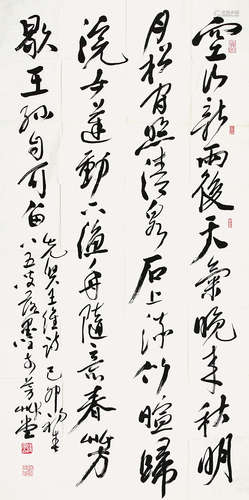 空山新雨後天氣晚來秋明
月松間照清泉石上流竹喧歸
浣女蓮動下漁舟隨意春芳
歇王孫自可留
王維詩己卯
八五叟